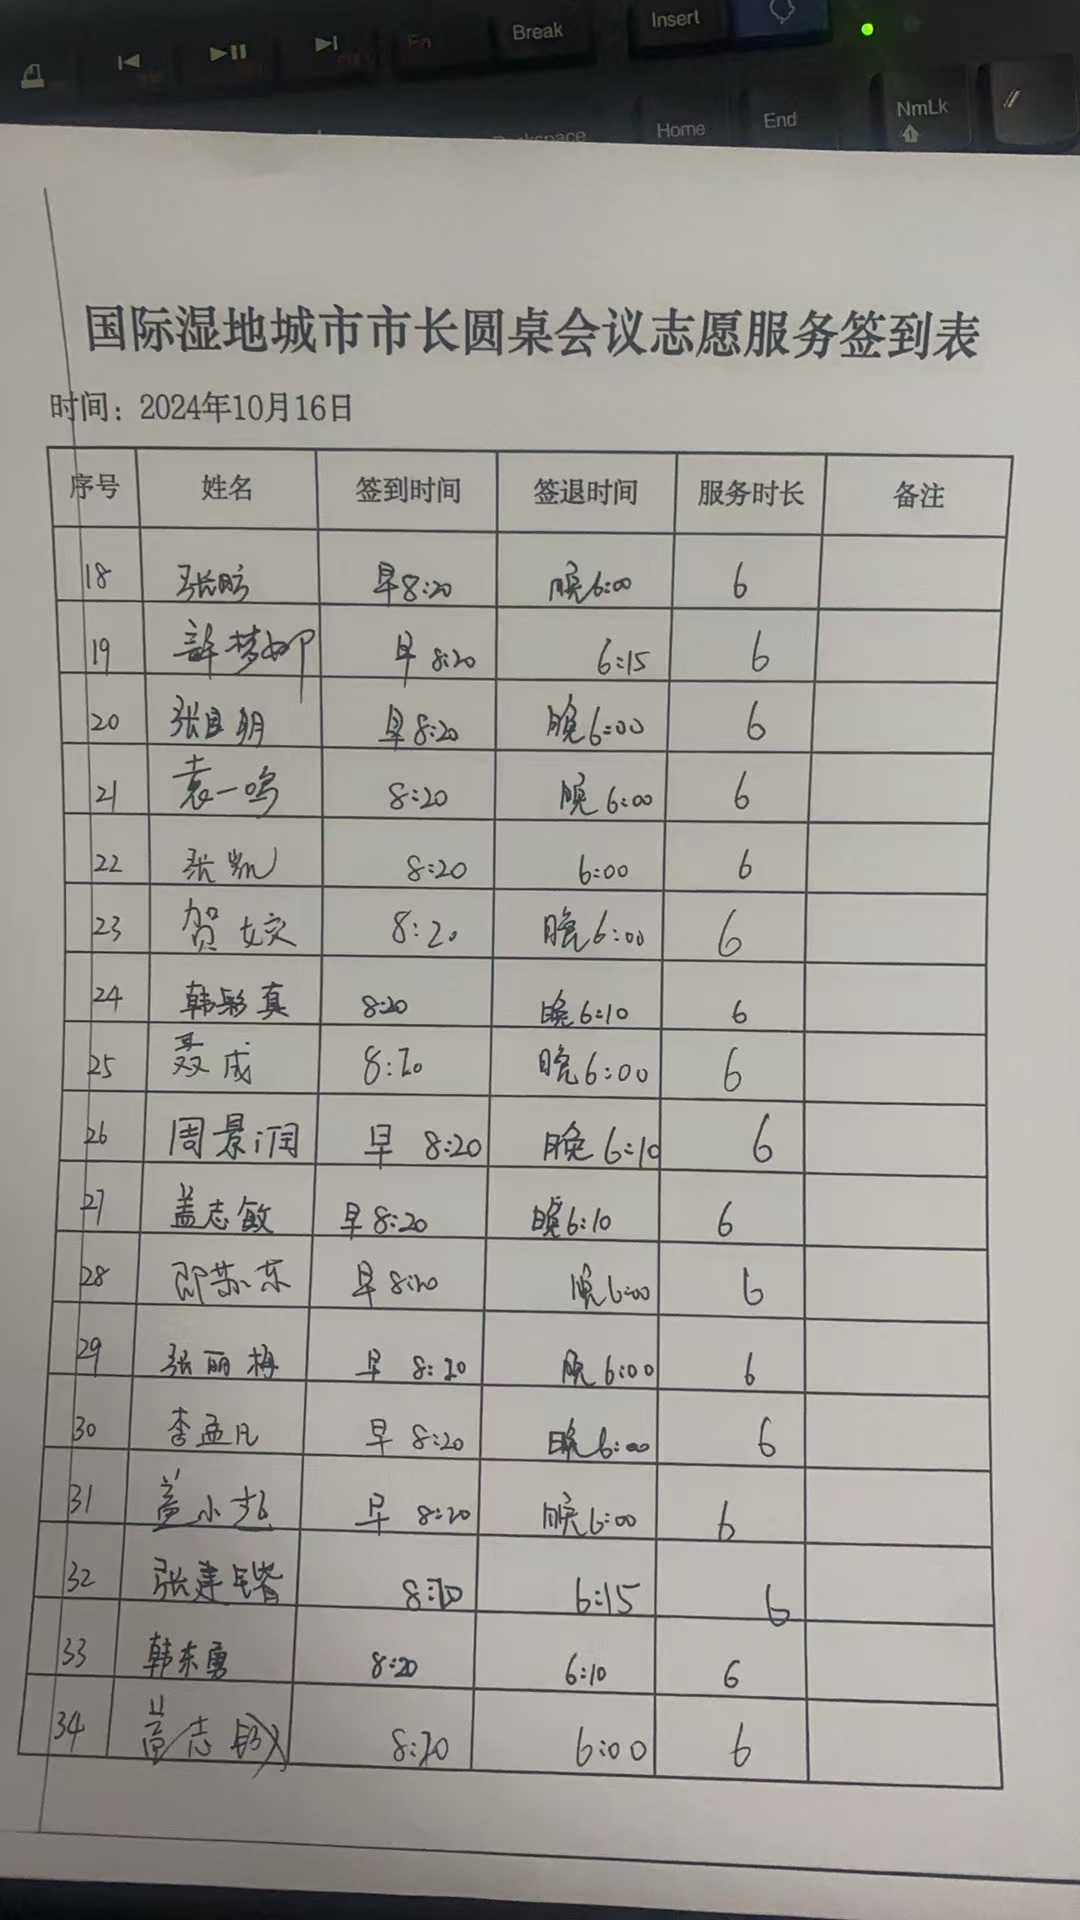 Break
Insert
Fn
Backspace
Home
End
NmLk
国际湿地城市市长圆桌会议志愿服务签到表
时间：2024年10月16日
序号 姓名 签到时间 签退时间 服务时长 备注
18 早8:20 晚6:00 6
19 早 8:20 6:15 6
20 早8:20 晚6:00 6
21 袁一鸣 8:20 晚6:00 6
22 张凯 8:20 6:00 6
23 贺姣 8:20 晚6:00 6
24 韩彩真 8:20 晚6:10 6
25 聂成 8:20 晚6:00 6
26 周景润 早 8:20 晚 6:10 6
27 盖志敏 早8:20 晚6:10 6
28 早8:20 晚6:00 6
29 张丽梅 早 8:20 晚6:00 6
30 李孟凡 早 8:20 晚6:00 6
31 早 8:20 晚6:00 6
32 8:20 6:15 6
33 韩东勇 8:20 6:10 6
34 8:20 6:00 6